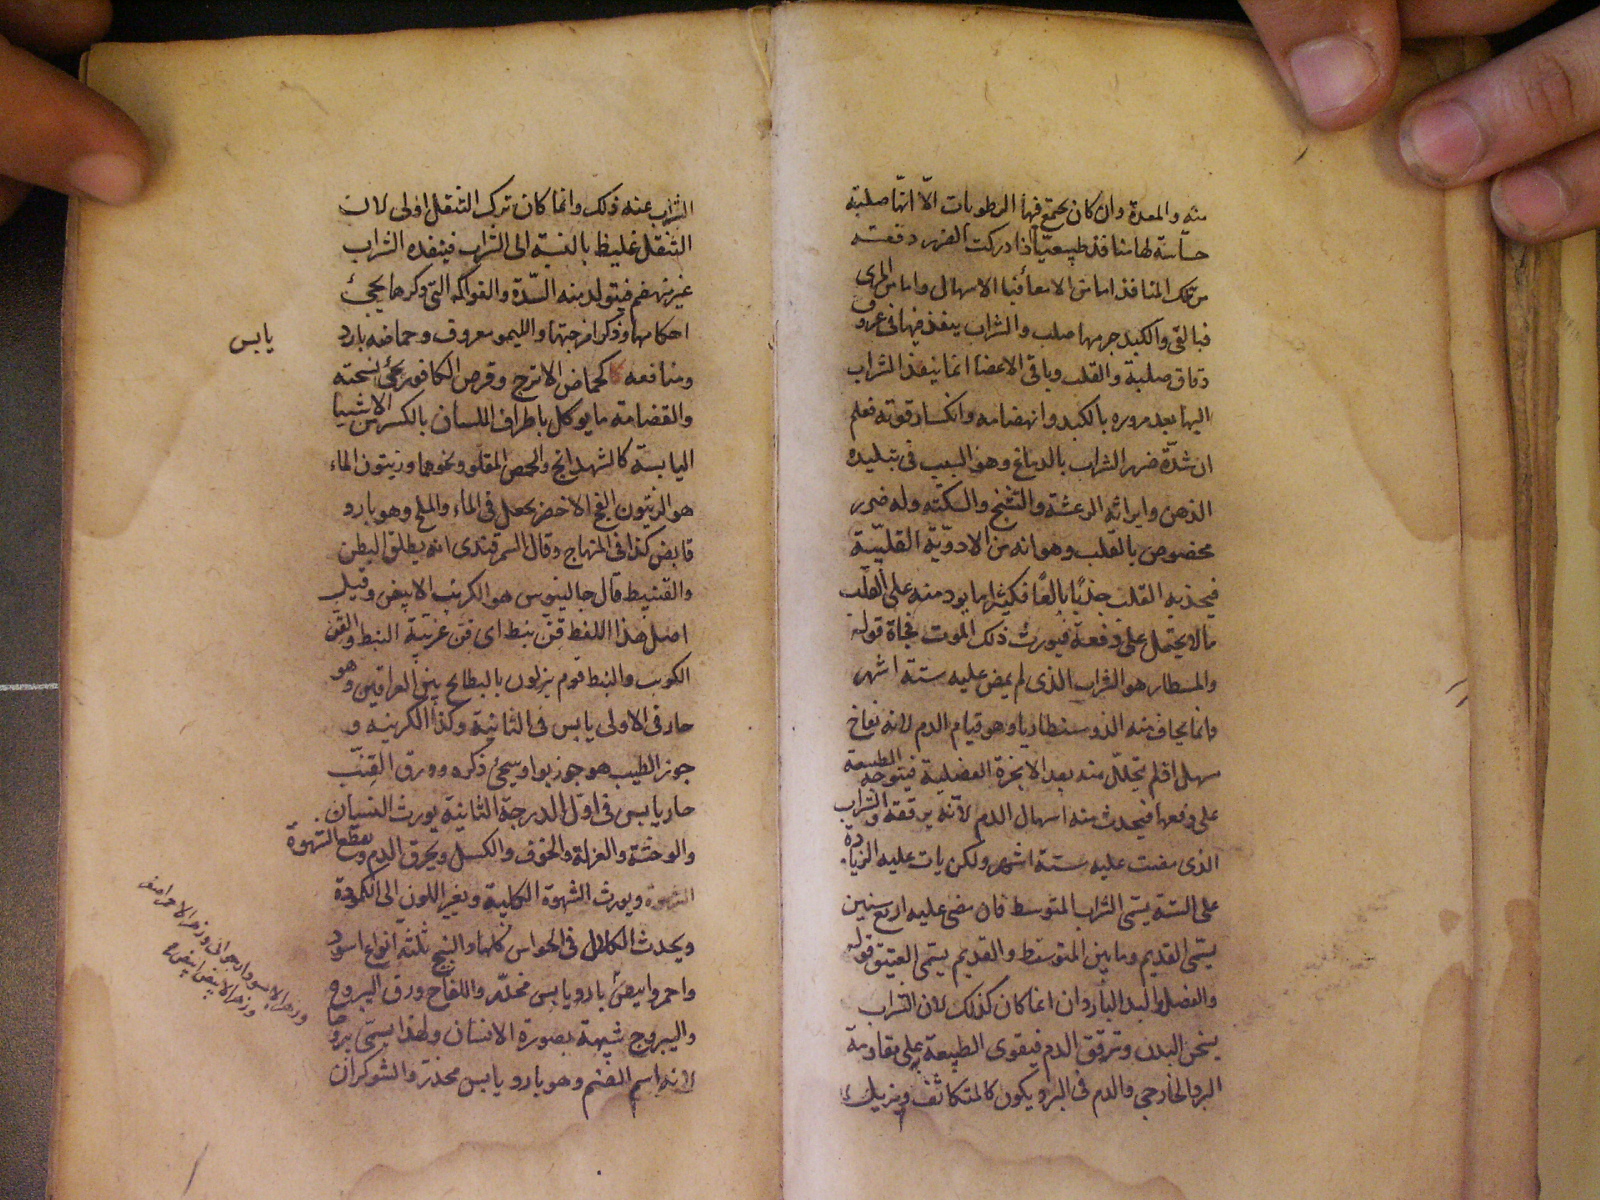 منه والمعدة وان كان يجتمع فيها الرطوبات الّا انّها صلبة
حسّاسة لها منافذ طبيعيّة اذا ادركت الضرر دفعته
من تلك المنافذ اما من الامعاء فبالاسهال واما من المرى
فبالقى والكبد جرمها صلب والشراب ينفذ فيها فى عروق
دقاق صلبة والقلب وباقى الاعضا انما ينفذ الشراب
اليها بعد مروره بالكبد وانهضامه وانكسار قوته فعلم
ان شدّة ضرر الشراب بالدماغ وهو السبب فى تبليده
الذهن وايراثه الرعشة والتشنج والسكته وله ضرر
مخصوص بالقلب وهو انه من الادوّية القلبيّة
فيجذبه القلب جذبًا بالغًا فكثيرا ما يرد منه على القلب
ما لا يحتمل على دفعة فيورث ذلك الموت فجاة قوله
والمسطار هو الشراب الذى لم يمض عليه ستة اشهر
وانما يخاف منه الذوسنطاريا وهو قيام الدم لانه نفاخ
مسهل اذ لم يتحلّل منه بعد الابخرة الفضلية فيتوجه الطبيعة
على دفعها فيحدث منه اسهال الدم لانّه يرققه والشراب
الذى مضت عليه ستة اشهر ولكن يات عليه الزيادة
على السنة يسمّى الشراب المتوسط فان مضى عليه اربع سنين
يسمّى القديم وما بين المتوسط والقديم يسمّى العتيق قوله
والفصل والبلد الباردان انما كان كذلك لان الشراب
يسخن البدن ويرقق الدم فيقوى الطبيعة على مقاومة
البرد الخارجى والدم فى البرد يكون كالمتكاثف ويزيل
الشراب عنه ذلك وانما كان ترك التنقل اولى لان
التنقل غليظ بالنسبة الى الشراب فينفذه الشراب
غير منهضم فيتولد منه السّدة والفواكه التى ذكرها يجئ
احكامها وذكر امزجتها والليمو معروف وحماضه بارد
يابس
ومنافعه كحماض الاترج وقرص الكافور يجئ نسخته
والقضامة ما يوكل باطراف اللسان بالكسر من الاشيا
اليابسة كالشهدانج والحمص المقلو ونحوهما وزيتون الماء
هو الزيتون الفج الاخضر يجعل فى الماء والملح وهو بارد
قابض كذا فى المنهاج وقال السمرقندى انه يطلق البطن
والقنبيط قال جالينوس هو الكرنب الابيض وقيل
اصل هذا اللفظ قنّ نبط اى قن عربيّة النبط والقن
الكرنب والنبط قوم ينزلون بالبطائح بين العراقين وهو
حار فى الاولى يابس فى الثانية وكذا الكرنبه و
جوز الطيب هو جوز بوا وسيجئ ذكره وورق القنّب
حار يابس فى اوّل الدرجة الثانية يورث النسيان
والوحشة والعزلة والخوف والكسل ويحرق الدم ويقطع الشهوة
ويورث الشهوة الكلبية ويغير اللون الى الكمودة
ويحدث الكلال فى الحواس كلها والبنج ثلثة انواع اسود
واحمر وابيض بارد يابس مخدّر واللفاح ورق اليبروح
واليبروح شبيهة بصورة الانسان ولهذا يسمّى يبروحا
لانه اسم الصنم وهو بارد يابس مخدّر والشوكران
وزهر الاسود ارجوانى وزهر الاحمر اصفر
وزهر الابيض ابيض